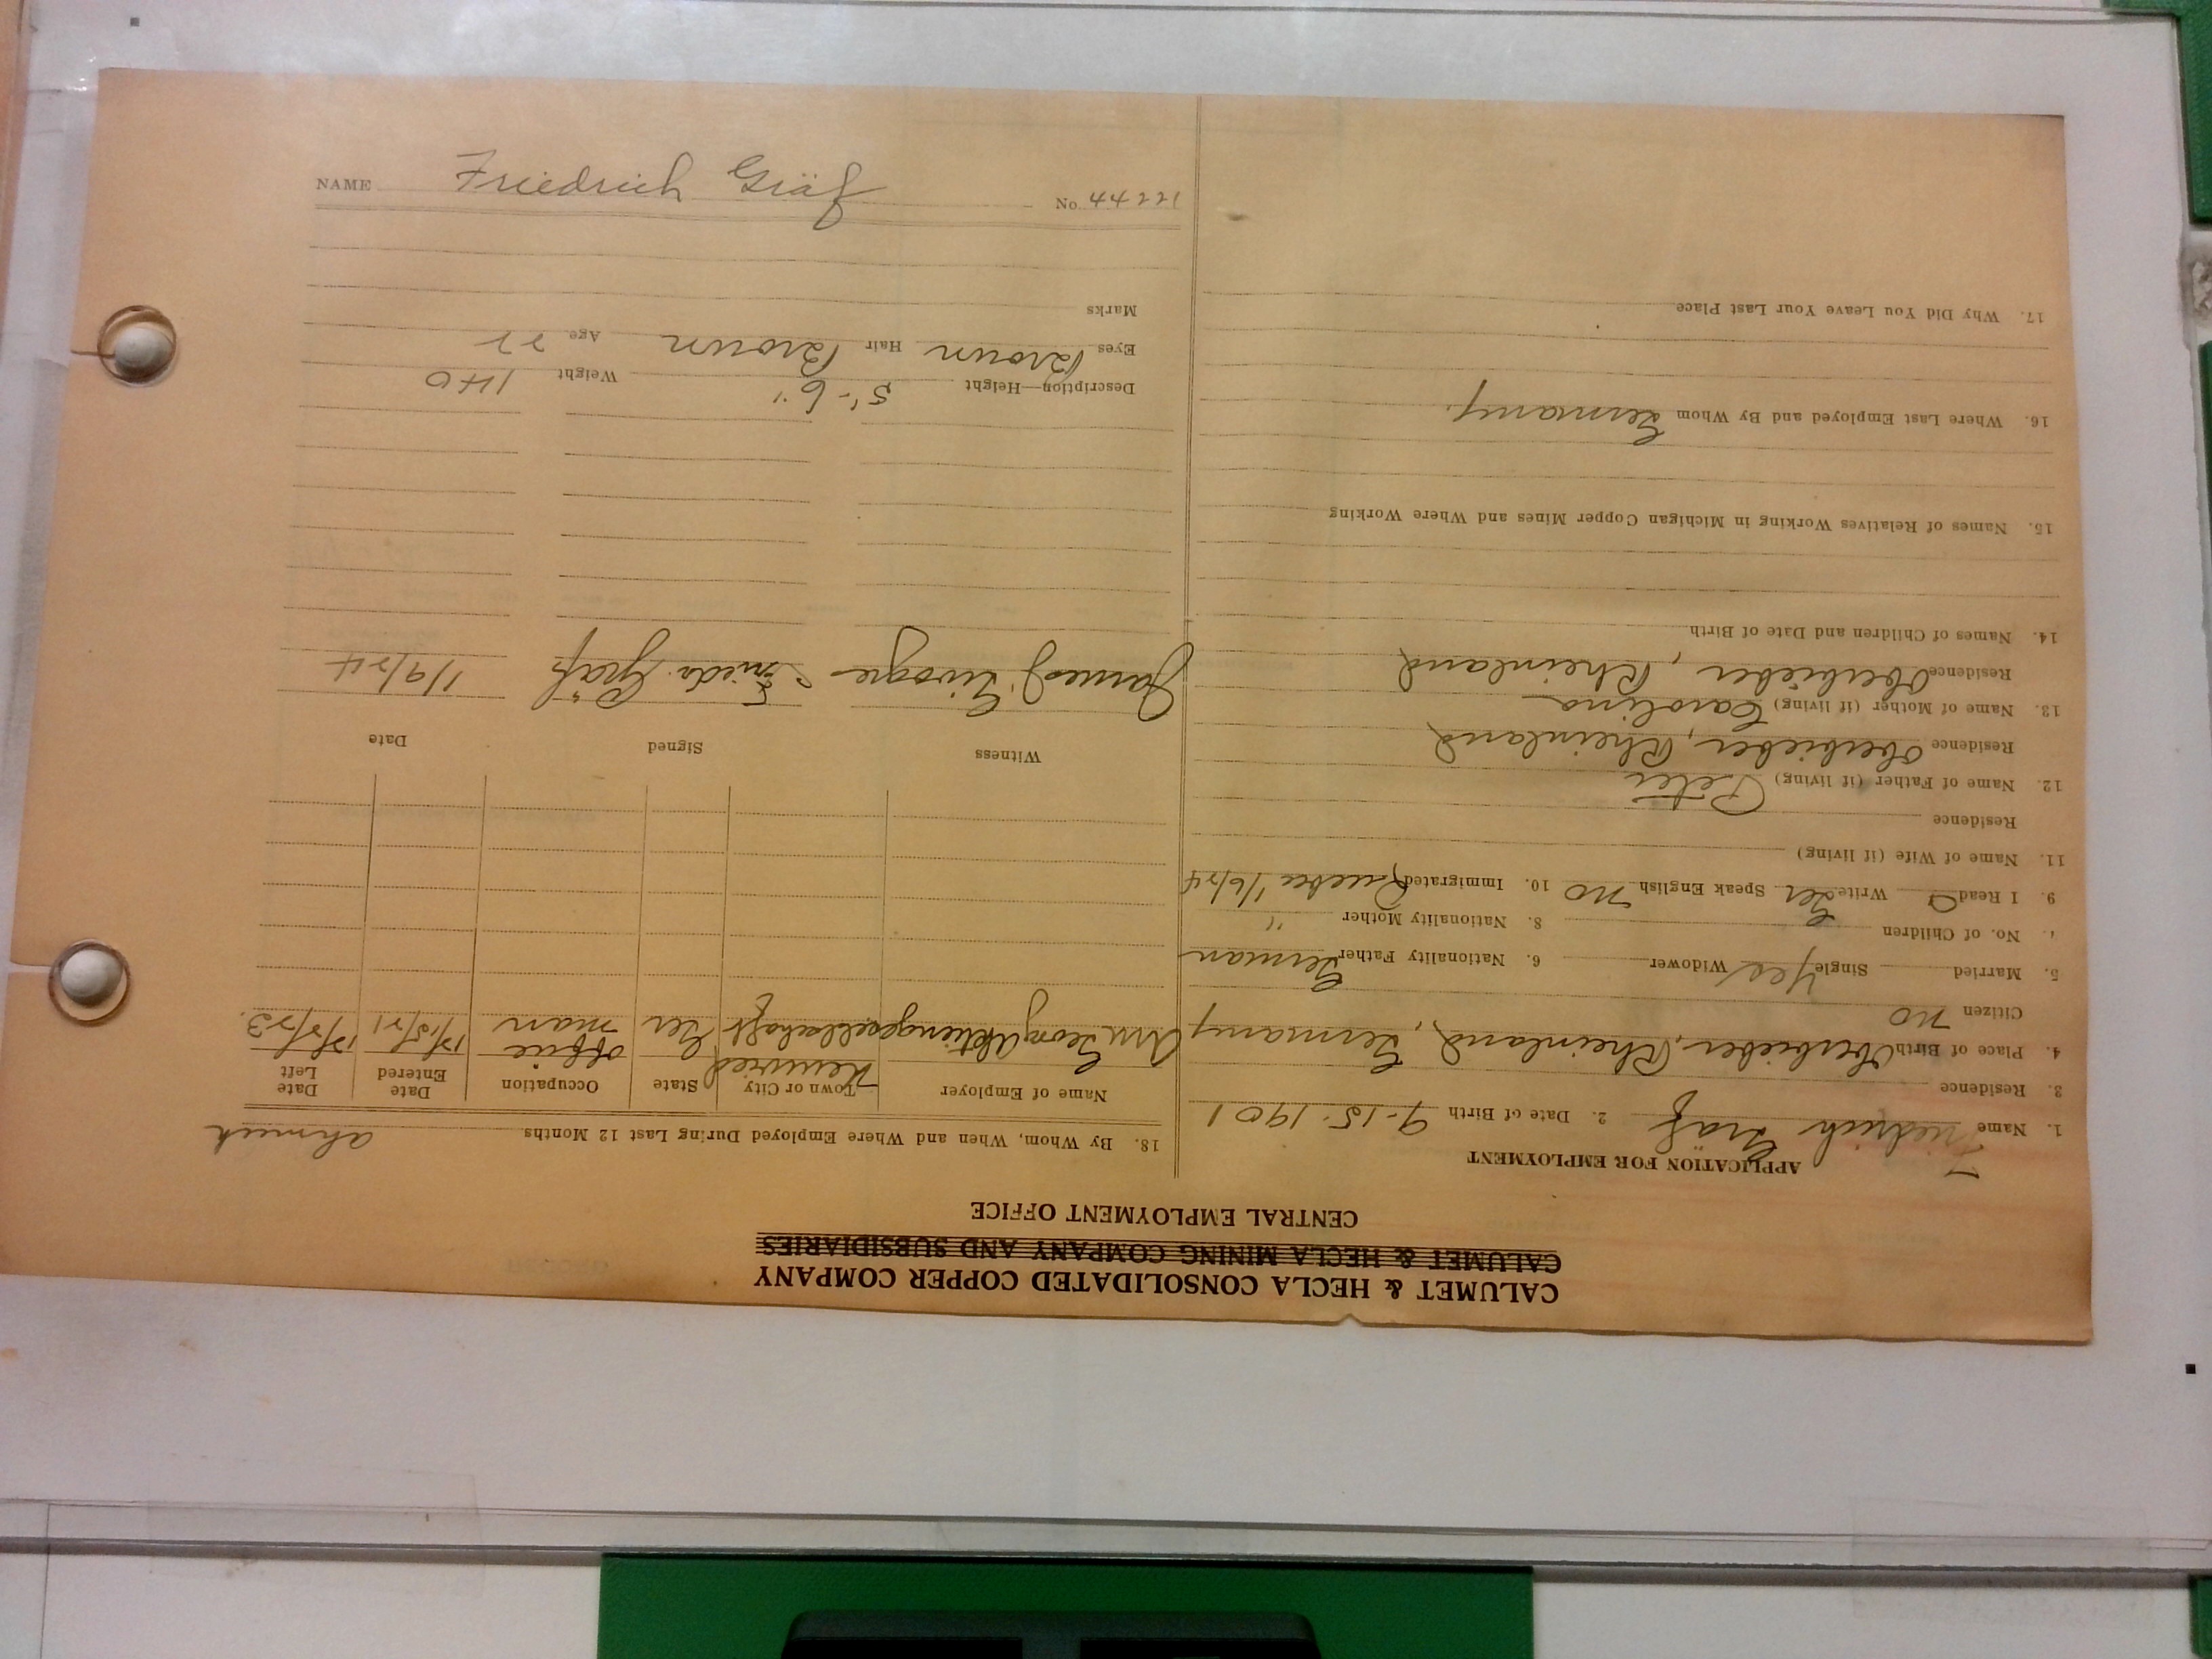 CALUMET & HECLA CONSOLIDATED COPPER COMPANY
CALUMET & HECLA MINING COMPANY AND SUBSIDIARIES
CENTRAL EMPLOYMENT OFFICE
APPLICATION FOR EMPLOYMENT
1. Name Friedrich Gräf 2. Date of Birth 9-15-1901
3. Residence
4. Place of Birth Oberbieber, Rheinland, Germany
Citizen no
5. Married Single Yes Widower 6. Nationality Father German
No. of Children 8. Nationality Mother "
9. I Read Write Ger Speak English no 10. Immigrated Quebec 1/6/24
11. Name of Wife (if living)
Residence
12. Name of Father (if living) Peter
Residence Oberbieber, Rheinland
13. Name of Mother (if living) Carolina
Residence Oberbieber, Rheinland
14. Names of Children and Date of Birth
15. Names of Relatives Working in Michigan Copper Mines and Where Working
16. Where Last Employed and By Whom Germany.
17. Why Did You Leave Your Last Place
18. By Whom, When and Where Employed During Last 12 Months Ahmeek
Name of Employer Town or City State Occupation Date Entered Date Left
Georg Aktiengesellschaft Neuwied Ger office man
Witness Signed Date
James J. Friedr. Gräf 1/9/24
Description—Height 5'-6" Weight 140
Eyes Brown Hair Brown Age 22
Marks
NAME Friedrich Gräf No. 44221